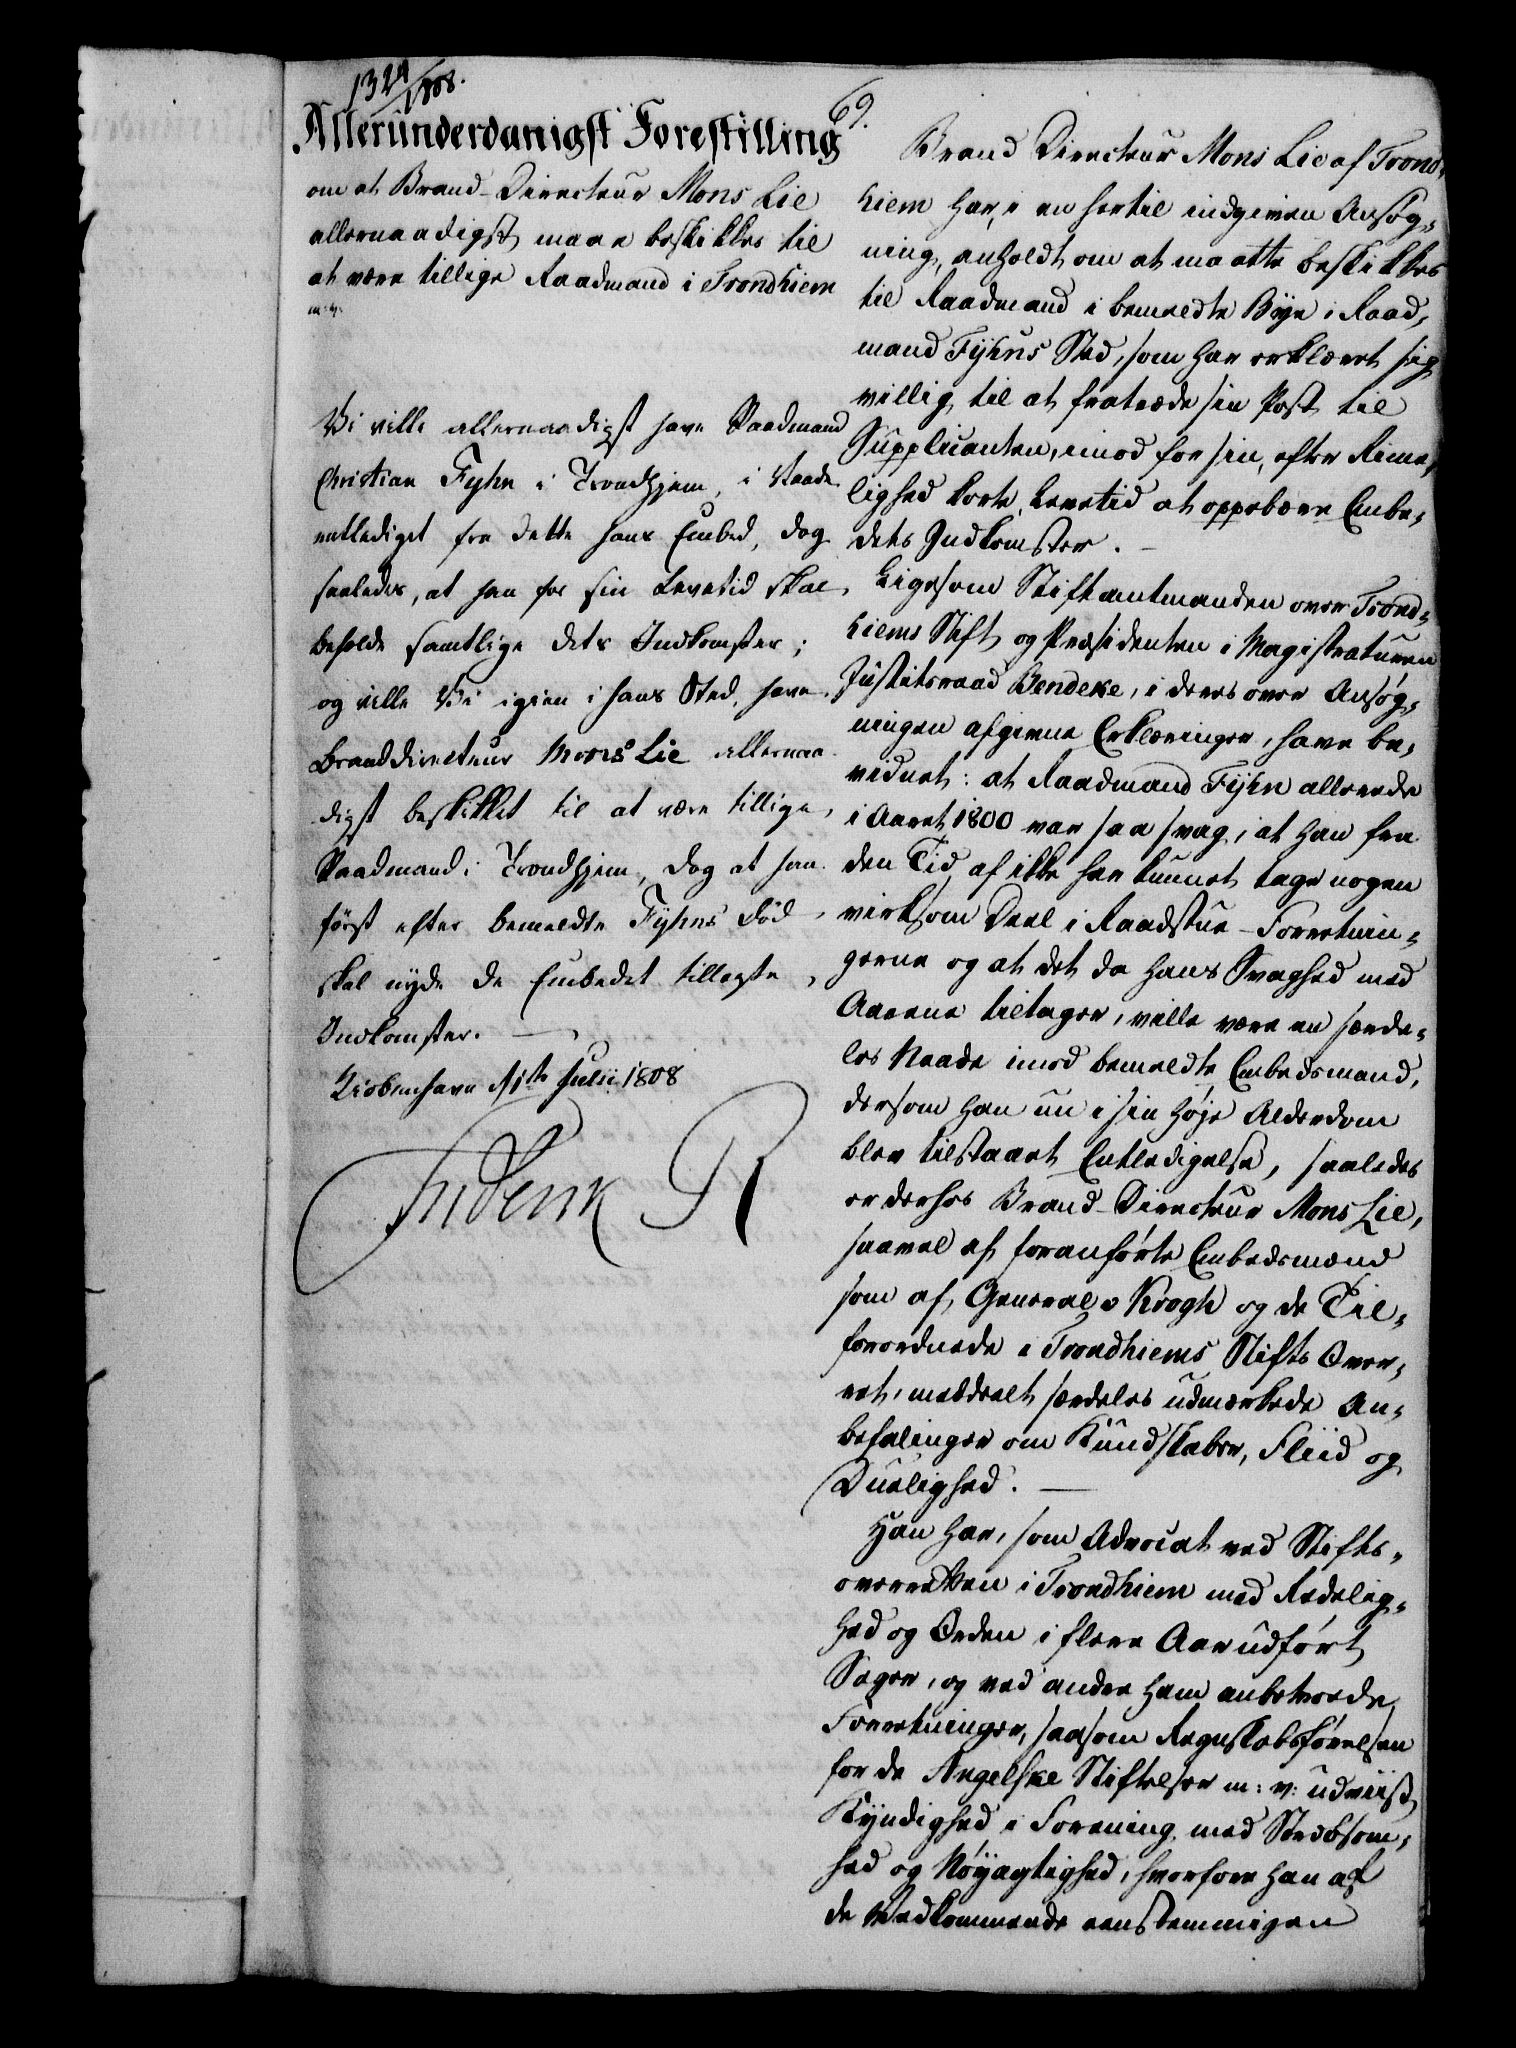 1324/1808.
69.
Allerunderdanigst Forestilling
om at Brand-Directeur Mons Lie
allernaadigst maae beskikkes til
at være tillige Raadmand i Trondhiem
m: v:
Vi ville allernaadigst have Raadmand
Christian Fyhn i Trondhjem, i Naade
entlediget fra dette hans Embed, dog
saaledes, at han for sin Levetid skal
beholde samtlige dets Indkomster;
og ville Vi igien i hans Sted, have
Branddirecteur Mons Lie allernaa
digst beskikket til at være tillige
Raadmand i Trondhjem, dog at han
først efter bemeldte Fyhns Død
skal nyde de Embedet tillagte
Indkomster.
Kiøbenhavn d 1te Julii 1808
Friderik R
Brand Directeur Mons Lie af Trond-
hiem har, i en hertil indgiven Ansøg-
ning, anholdt om at maatte beskikkes
til Raadmand i bemeldte Bye i Raad-
mand Fyhns Sted, som har erklæret sig
villig til at fratræde sin Post til
Supplicanten, imod for sin, efter Rime-
lighed korte Levetid at oppebære Embe-
dets Indkomster.
Ligesom Stiftamtmanden over Trond-
hiems Stift og Præsidenten i Magistraturen
Justitsraad Bendeke, i deres over Ansøg-
ningen afgivne Erklæringer, have be-
vidnet: at Raadmand Fyhn allerede
i Aaret 1800 var saa svag, at han fra
den Tid af ikke har kunnet tage nogen
virksom Deel i Raadstue-Forretnin-
gerne og at det da hans Svaghed med
Aarene tiltager, ville være en særde-
les Naade imod bemeldte Embedsmand,
dersom han nu i sin høje Alderdom
blev tilstaaet Entledigelse, saaledes
er derhos Brand-Directeur Mons Lie,
saavel af foranførte Embedsmænd
som af General v Krogh og de Til-
forordnede i Trondhiems Stifts Over-
ret, meddeelt særdeles udmærkede An-
befalinger om Kundskaber, Fliid og
Duelighed.
Han har, som Advocat ved Stifts-
overretten i Trondhiem med Redelig-
hed og Orden i flere Aar udført
Sager, og ved andre ham anbetroede
Forretninger, saasom Regnskabsførelsen
for de Angelske Stiftelser m: v: udviist
Kyndighed i Forening med Stræbsom-
hed og Nøyagtighed, hvorfore han af
de Vedkommende eenstemmigen